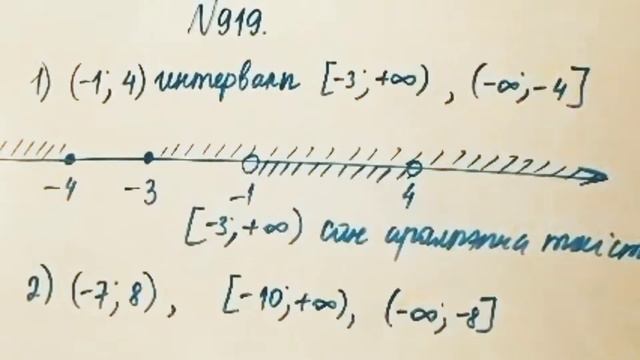 N919.
1) (-1; 4) интервалы [-3; +∞) , (-∞; -4]
-4 -3 -1 4
[-3; +∞) сан аралығына тиіст
2) (-7; 8), [-10; +∞), (-∞; -8]